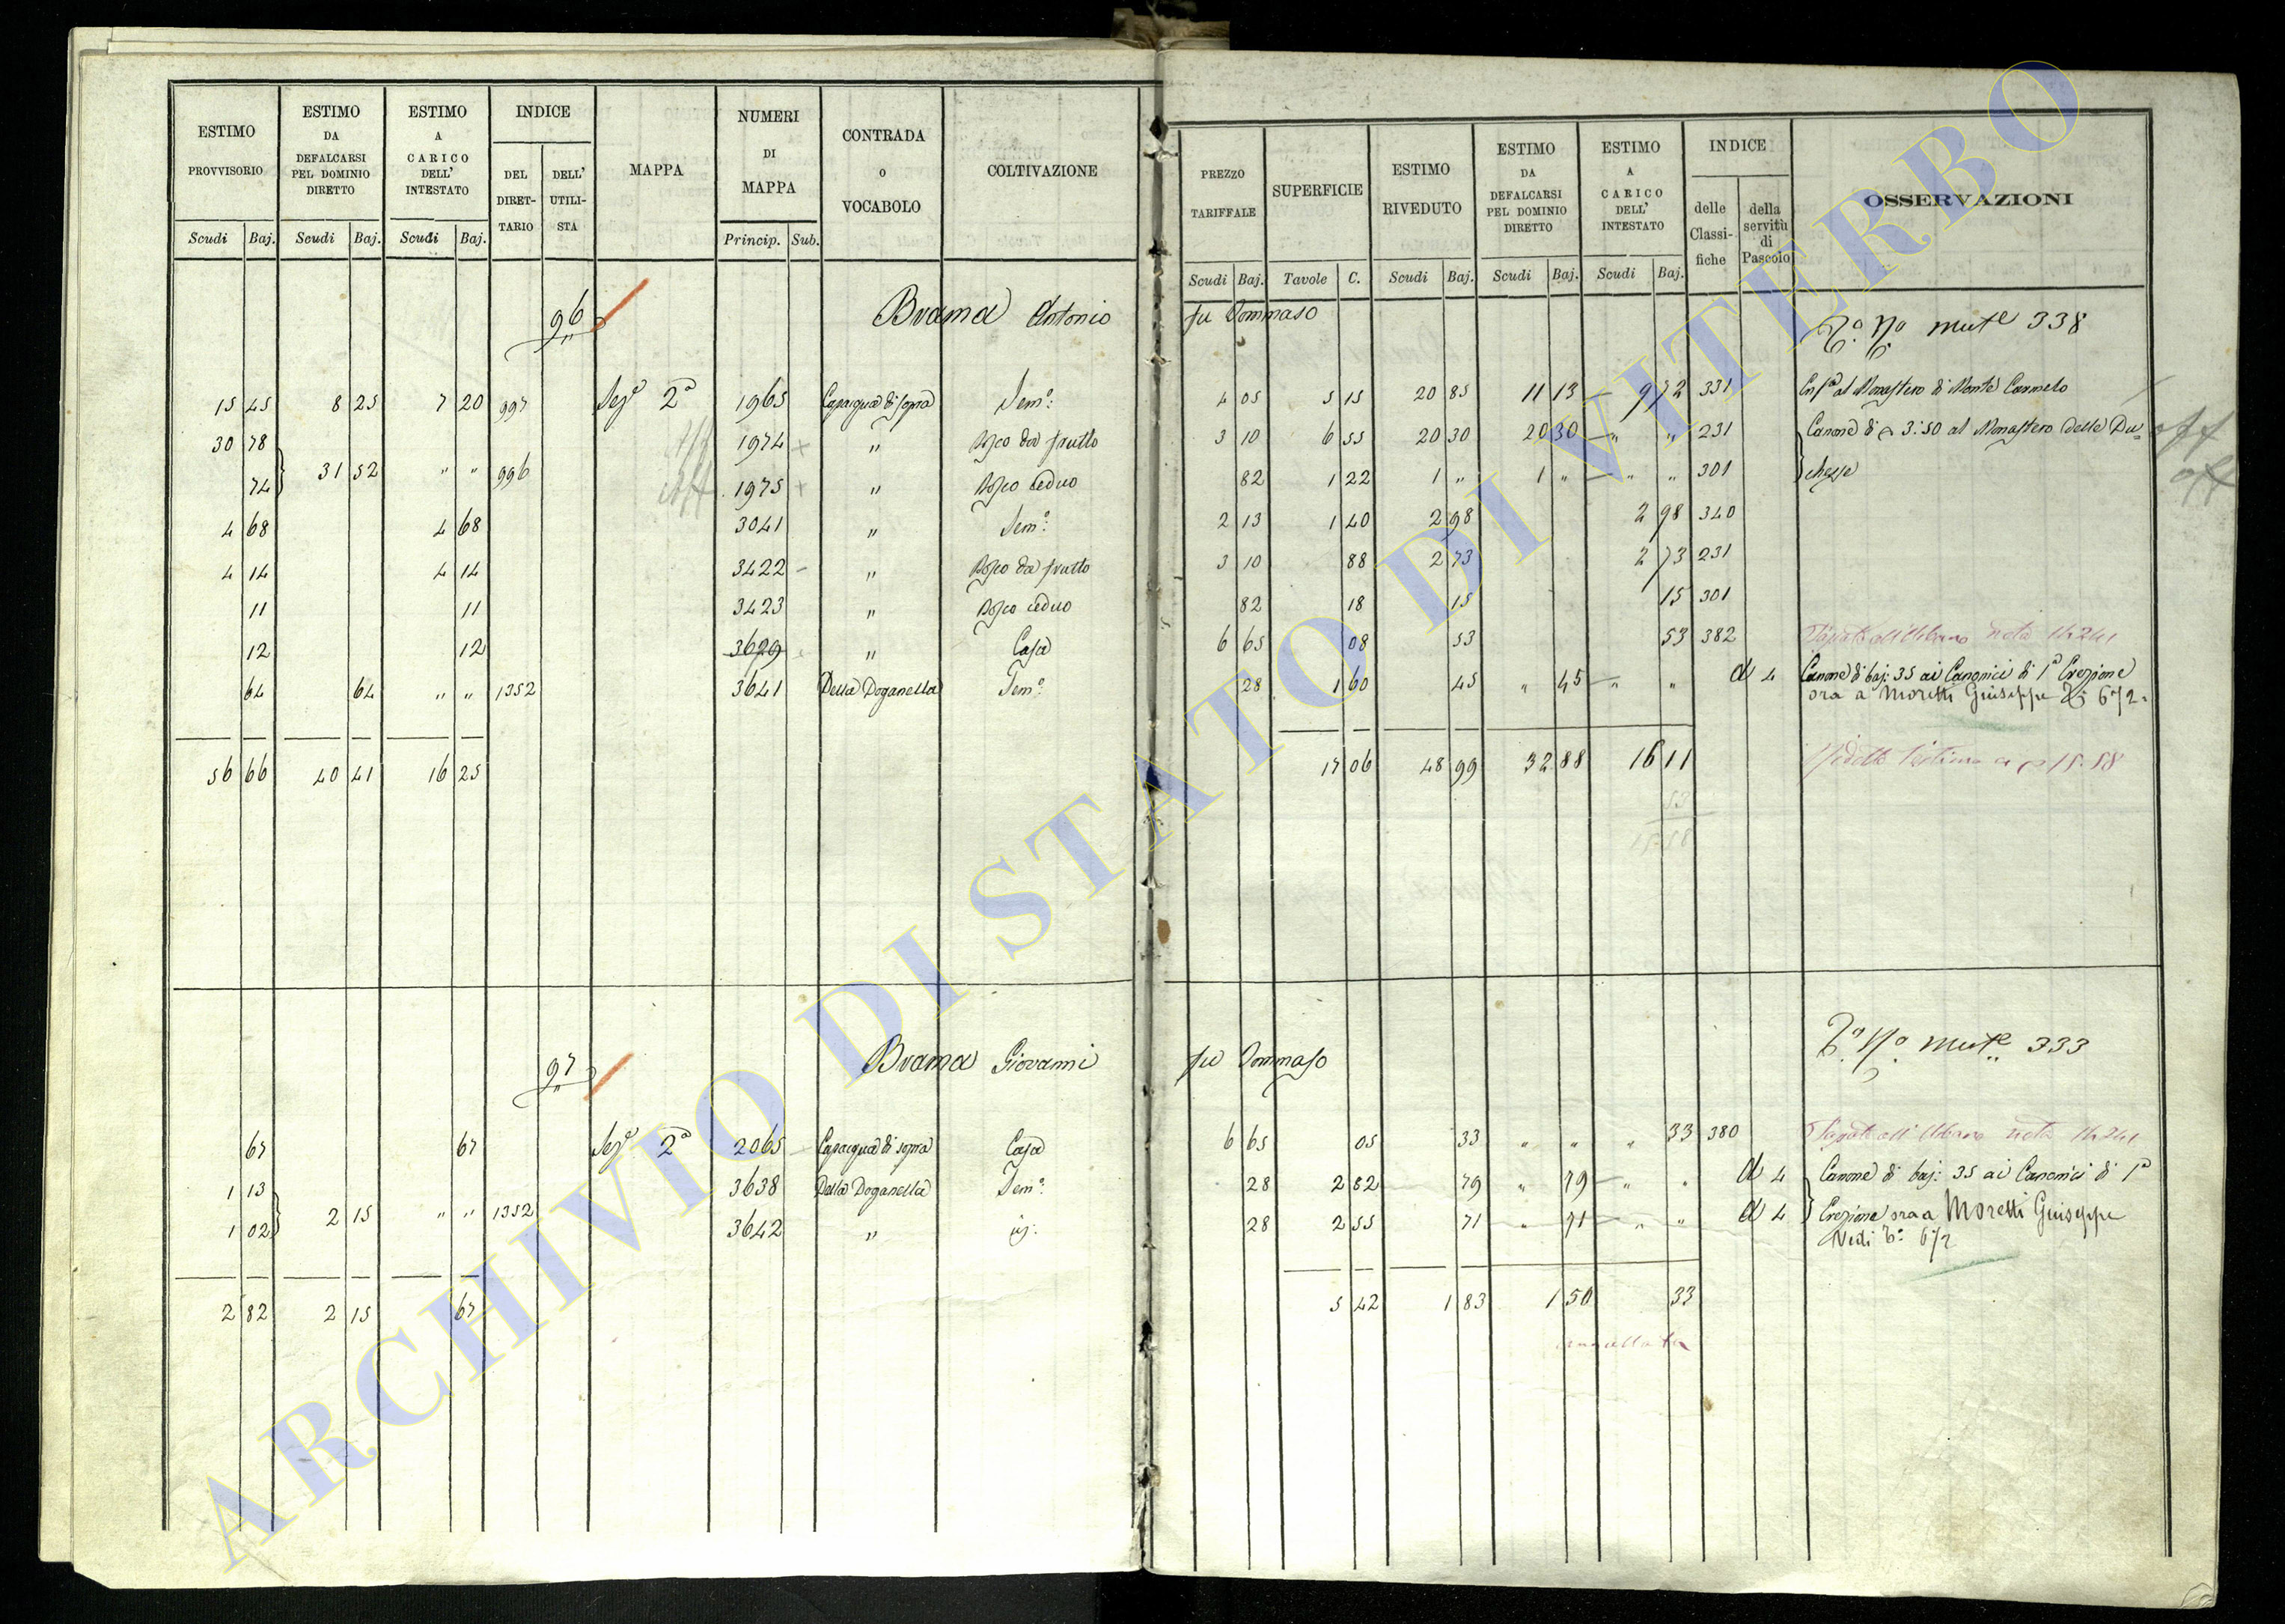 ESTIMO PROVVISORIO
ESTIMO DA DEFALCARSI PEL DOMINIO DIRETTO
ESTIMO A CARICO DELL' INTESTATO
INDICE
DEL DIRET-TARIO
DELL' UTILI-STA
MAPPA
NUMERI DI MAPPA
CONTRADA O VOCABOLO
COLTIVAZIONE
PREZZO TARIFFALE
SUPERFICIE
ESTIMO RIVEDUTO
ESTIMO DA DEFALCARSI PEL DOMINIO DIRETTO
ESTIMO A CARICO DELL' INTESTATO
INDICE
delle Classi-fiche
della servitù di Pascolo
OSSERVAZIONI
Scudi Baj. Scudi Baj. Scudi Baj. Princip. Sub.
Scudi Baj. Tavole C. Scudi Baj. Scudi Baj. Scudi Baj.
96 Brama Antonio fu Tommaso mut.e 338
15 45 8 25 7 20 997 Sez.e 2a 1965 Capacqua di sopra Sem.o 4 05 5 15 20 85 11 13 9 72 331 Enf.a al Monastero di Monte Carmelo
30 78 1974 " Bosco da frutto 3 10 6 55 20 30 20 30 " " 231 Canone di 3:50 al Monastero delle Du=
74 31 52 " " 996 1975 " Bosco ceduo 82 1 22 1 " 1 " " " 301 chesse
4 68 4 68 3041 " Sem.o 2 13 1 40 2 98 2 98 340
4 14 4 14 3422 " Bosco da frutto 3 10 88 2 73 2 73 231
11 11 3423 " Bosco ceduo 82 18 15 15 301
12 12 3629 " Casa 6 65 08 53 53 382
64 64 " " 1352 3641 Della Doganella Sem.o 28 1 60 45 " 45 " " d 4 Canone di baj: 35 ai Canonici di 1a Erezione
ora a Moretti Giuseppe 672
56 66 40 41 16 25 17 06 48 99 32 88 16 11 Ridotto l'estimo a 15.58
53
15 58
97 Brama Giovanni fu Tommaso mut.e 333
67 67 Sez.e 2a 2065 Capacqua di sopra Casa 6 65 05 33 " " " 33 380
1 13 3638 Della Doganella Sem.o 28 2 82 79 " 79 " " d 4 Canone di baj: 35 ai Canonici di 1a
1 02 2 15 " " 1352 3642 " id: 28 2 55 71 " 71 " " d 4 Erezione ora a Moretti Giuseppe
Vedi 672
2 82 2 15 67 5 42 1 83 1 50 33
annullata
ARCHIVIO DI STATO DI VITERBO